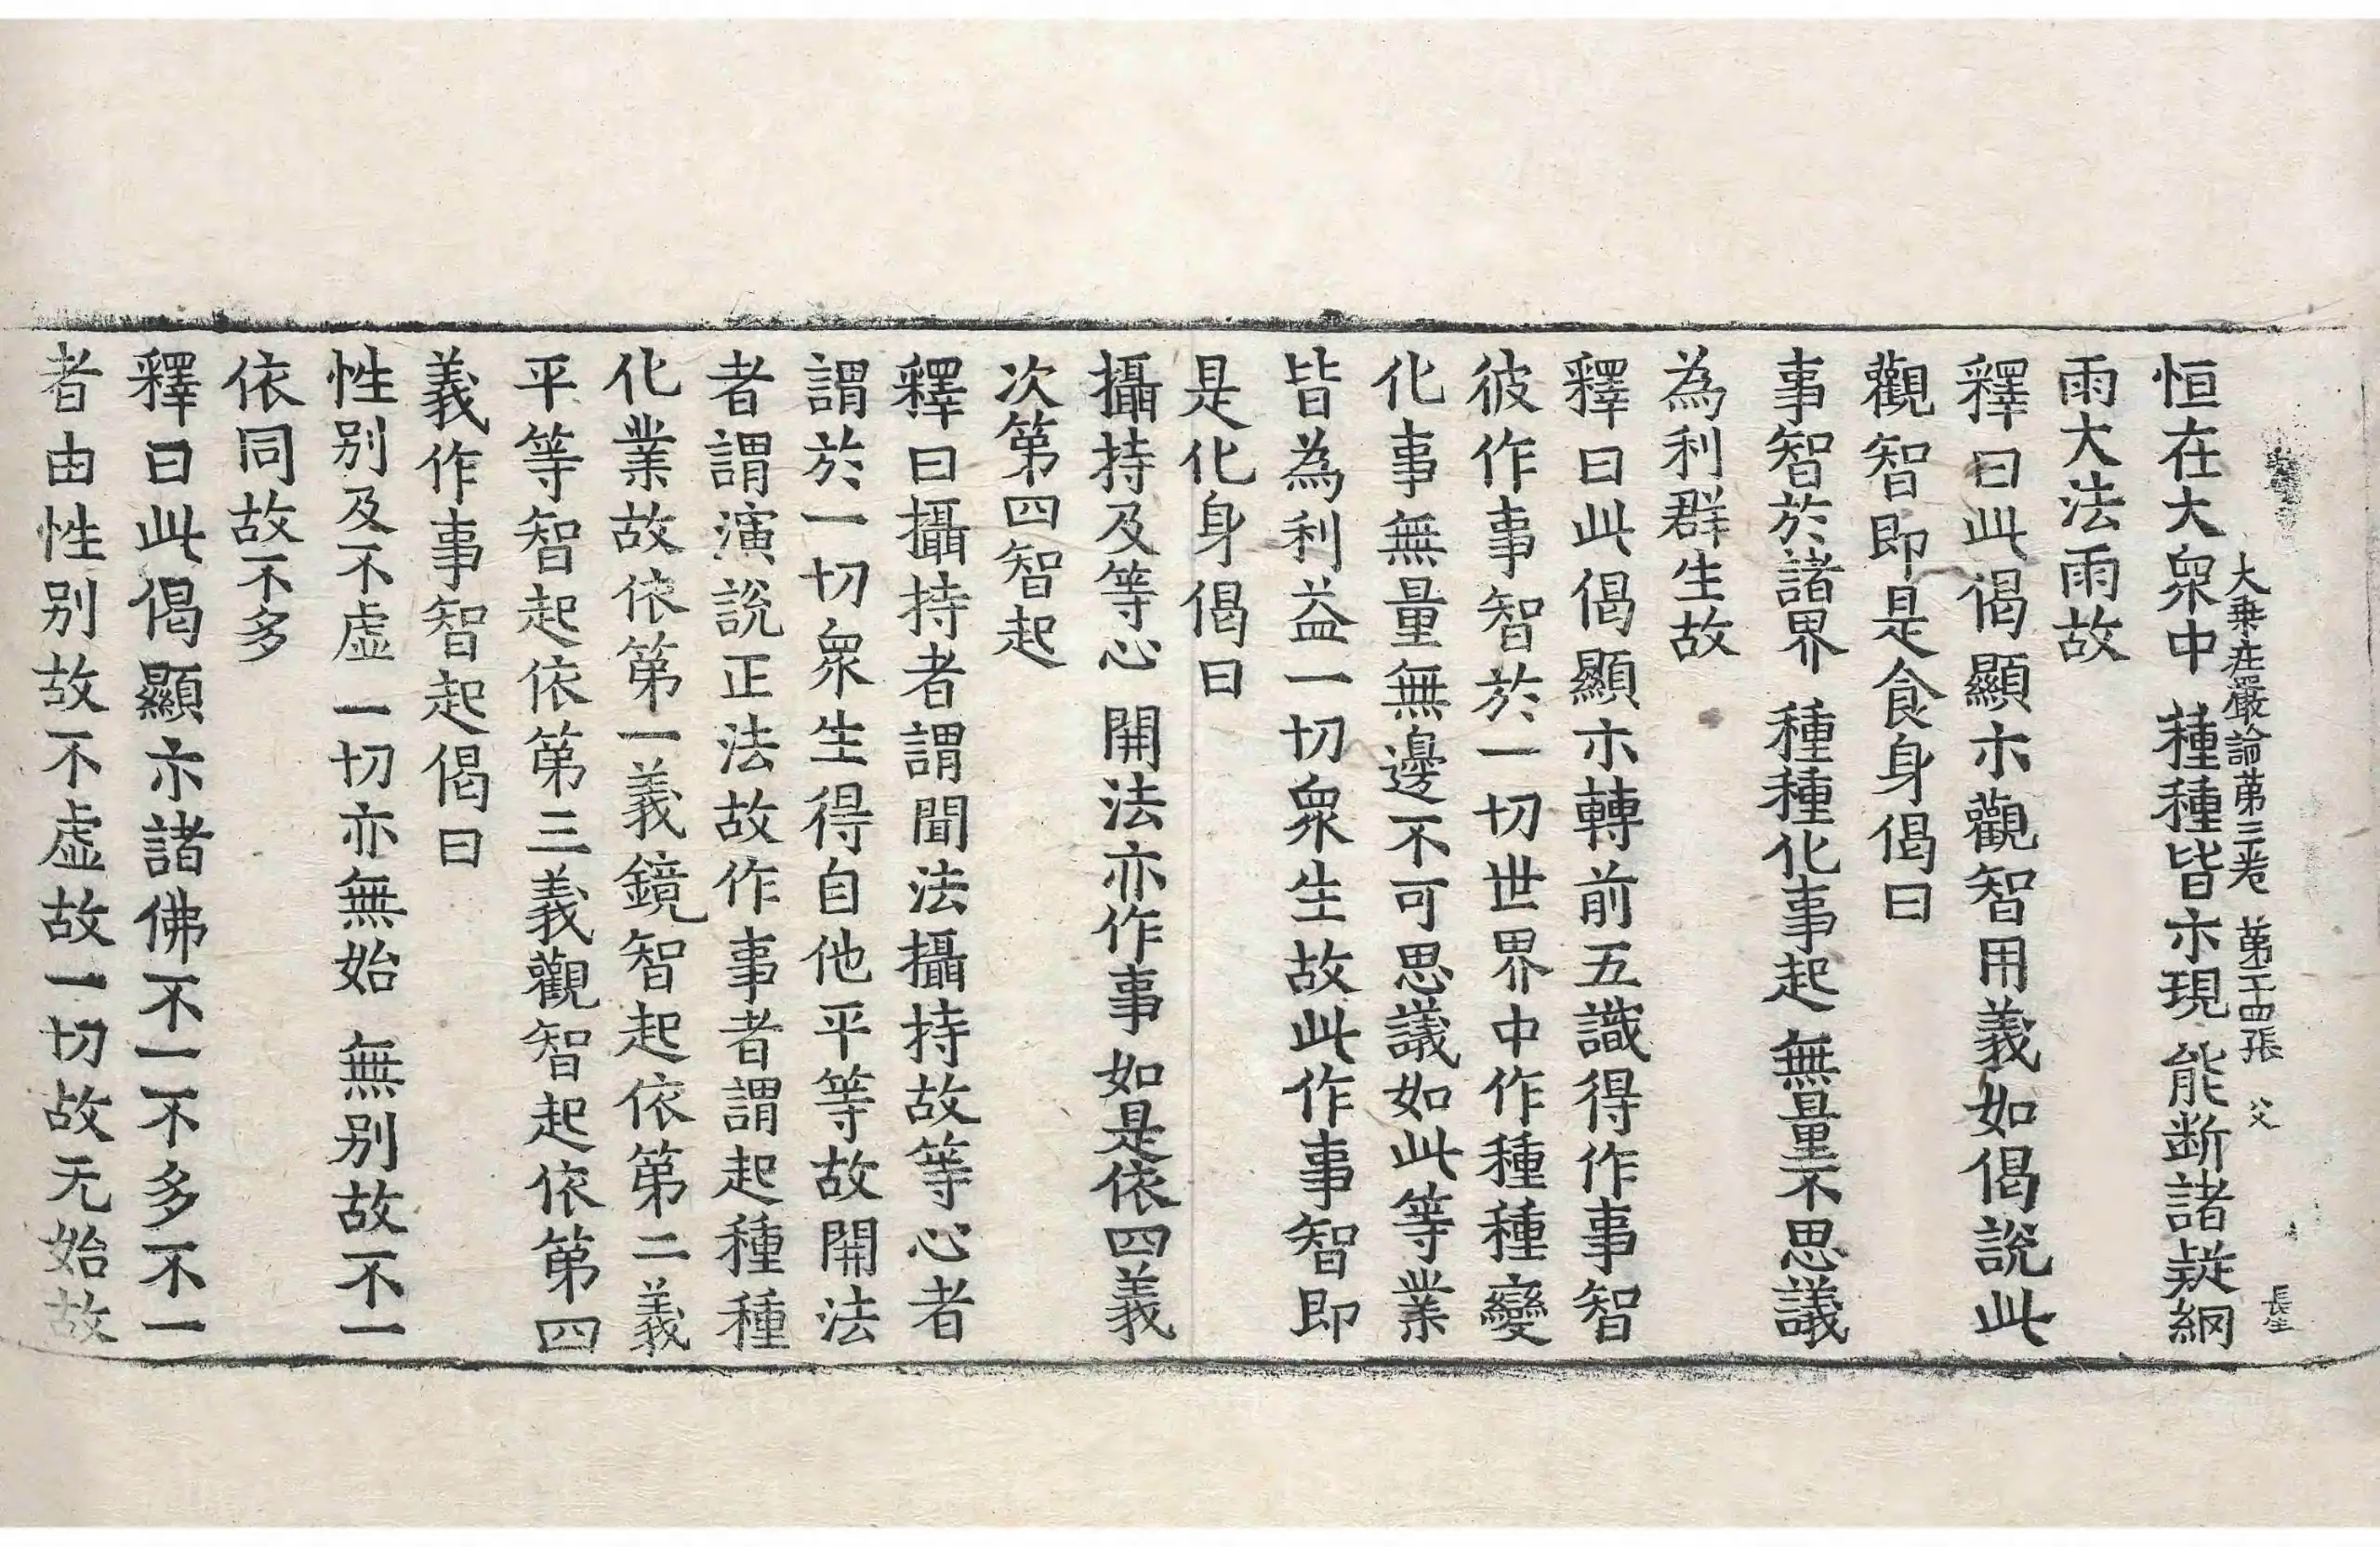 大乗庄嚴論苐三卷 苐二十四張 父
恒在大衆中 種種皆示現 能断諸疑網
雨大法雨故
釋曰此偈顯示觀智用義如偈說此
觀智即是食身偈曰
事智於諸界 種種化事起 無量不思議
為利群生故
釋曰此偈顯示轉前五識得作事智
彼作事智於一切世界中作種種變
化事無量無邊不可思議如此等業
皆為利益一切衆生故此作事智即
是化身偈曰
攝持及等心 開法亦作事 如是依四義
次第四智起
釋曰攝持者謂聞法攝持故等心者
謂於一切衆生得自他平等故開法
者謂演說正法故作事者謂起種種
化業故依第一義鏡智起依第二義
平等智起依第三義觀智起依第四
義作事智起偈曰
性别及不虛 一切亦無始 無别故不一
依同故不多
釋曰此偈顯示諸佛不一不多不一
者由性别故不虛故一切故无始故